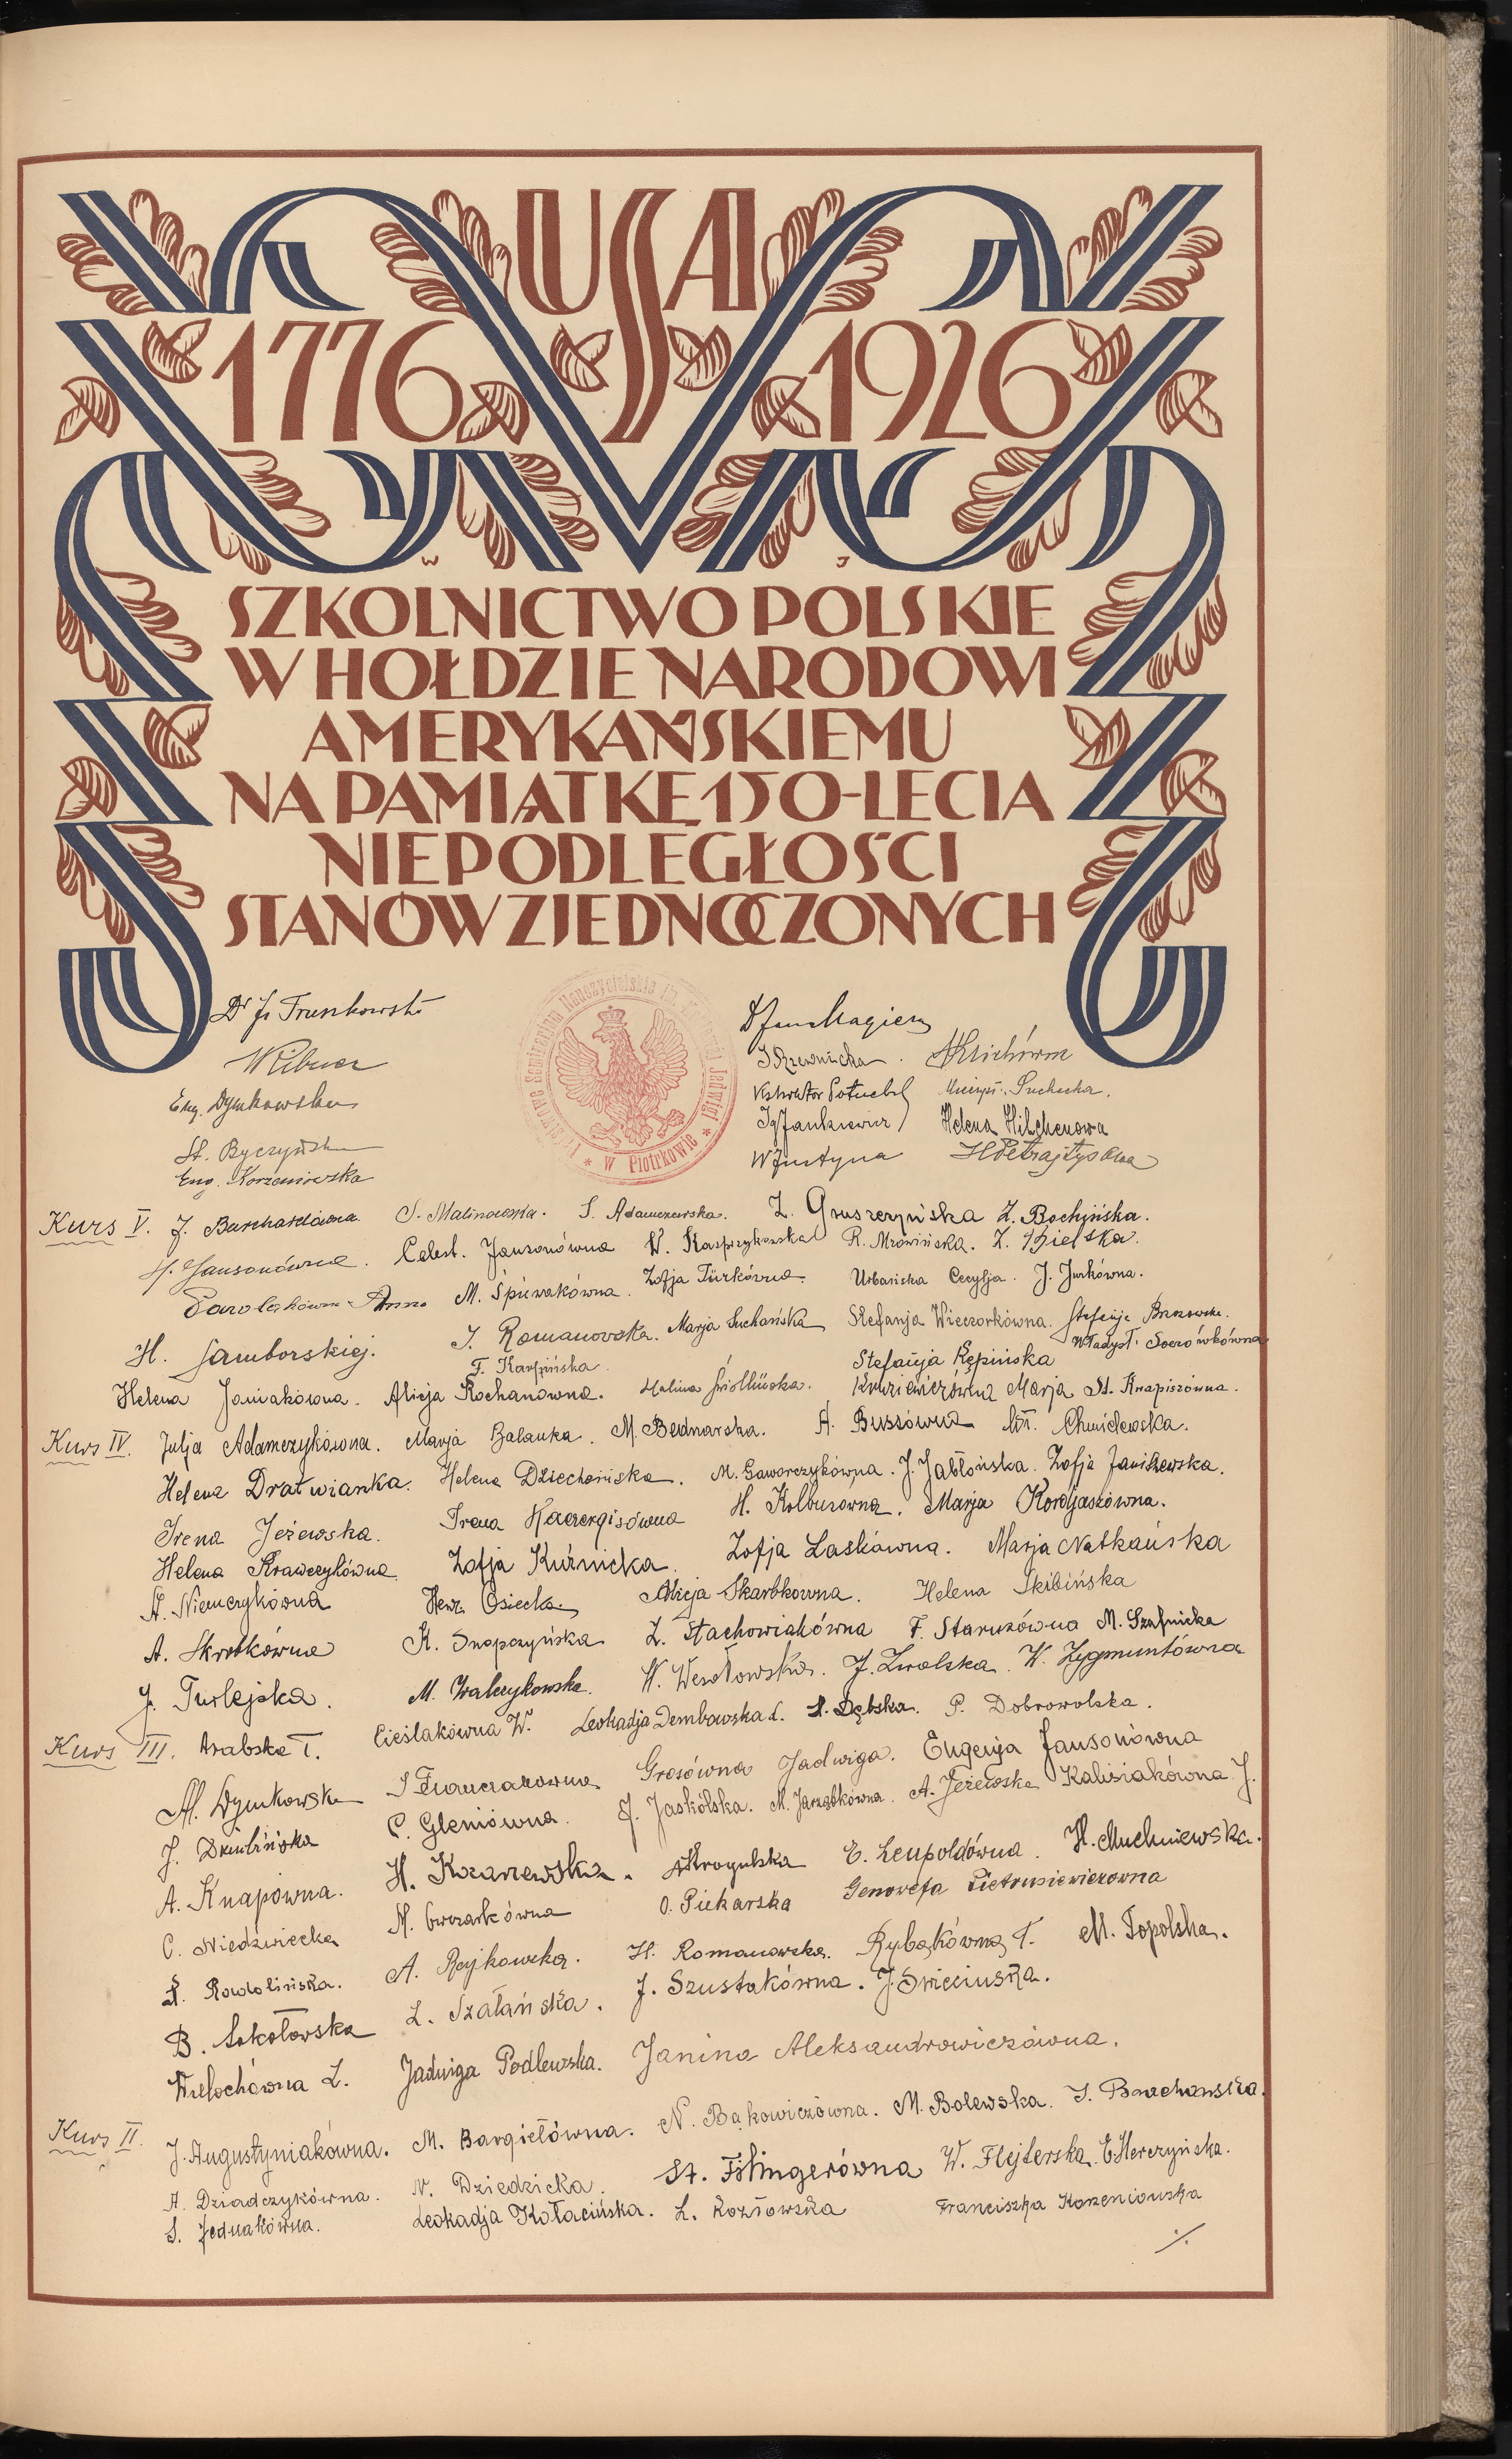 USA
1776 1926
W J
SZKOLNICTWO POLSKIE
W HOŁDZIE NARODOWI
AMERYKAŃSKIEMU
NA PAMIĄTKĘ 150-LECIA
NIEPODLEGŁOŚCI
STANÓW ZJEDNOCZONYCH
Seminarjum Nauczycielskie im. Jadwigi * w Piotrkowie *
Dr J. Trunkowski
Eng. Dymkowska
St. Byczyńska
Eng. Korzeniowska
Dr Jan Magiera
J Rzewnicka
Ig Jankiewicz
Suchecka.
Helena Hilchenowa
W Justyna
Kurs V. J. Burchardówna S. Malinowska. S. Adamczewska. Z. Gruszczyńska Z. Bochyńska.
H. Jansonówna. Celest. Jansonówna W. Kasprzykowska R. Mrowińska. Z. Bielska.
Anna M. Śpiewakówna. Zofja Türkówna. Urbańska Cecylja. J. Jurkówna.
H. Jamborskiej. J. Romanowska. Marja Suchańska Stefanja Wieczorkówna. Stefanja Brzozowska.
F. Karpińska. Stefanja Kępińska Władysł. Soczówkówna
Helena Janiakówna. Alicja Kochanówna. Halina Marja St. Knapiszówna.
Kurs IV. Julja Adamczykówna. Marja Balanka. M. Bednarska. A. Bussówna Chmielewska.
Helena Dratwianka. Helena Dziechcińska. M. Gaworczykówna. J. Jabłońska. Zofja Janiszewska.
Irena Jeżewska. Irena Kacengisówna H. Kolbuszówna. Marja Kordjaszówna.
Helena Krawczykówna. Zofja Kuźnicka. Zofja Laskówna. Marja Natkańska
A. Niemczykówna Henr. Osiecka Alicja Skarbkówna. Helena Skibińska
A. Skrobkówna K. Snopczyńska Z. Stachowiakówna F. Staruzówna M. Szafnicka
J. Turlejska. M. Walczykowska. W. Wesołowska. J. Zwolska. W. Zygmuntówna
Kurs III. Arabska T. Cieślakówna W. Leokadja Dembowska L. S. Dębska. P. Dobrowolska.
M. Dymkowska J Franczakówna Grosówna Jadwiga. Eugenja Jansonówna
J. Dziubińska C. Gleniówna. J. Jaskólska. M. Jarząbkówna. A. Jeżewska Kalisiakówna J.
A. Knapówna. H. Kozarzewska. A Krogulska E. Leupoldówna. H. Muchniewska.
C. Niedźwiecka M. Owczarkówna O. Piekarska Genowefa Pietrusiewiczówna
A. Rejkowska. H. Romanowska. Rybakówna T. M. Topolska.
B. Sokołowska L. Szałańska. J. Szustakówna. J. Świeciuska.
Wielochówna L. Jadwiga Podlewska. Janina Aleksandrowiczówna.
Kurs II. J. Augustyniakówna. M. Bargiełówna. N. Bąkowiczówna. M. Bolewska. J. Brachowska.
A. Dziadczykówna. N. Dziedzicka. St. Fistingerówna W. Flejterska. E. Herczyńska.
S. Jednakówna. Leokadja Kołacińska. L. Kozłowska Franciszka Korzeniowska
./.